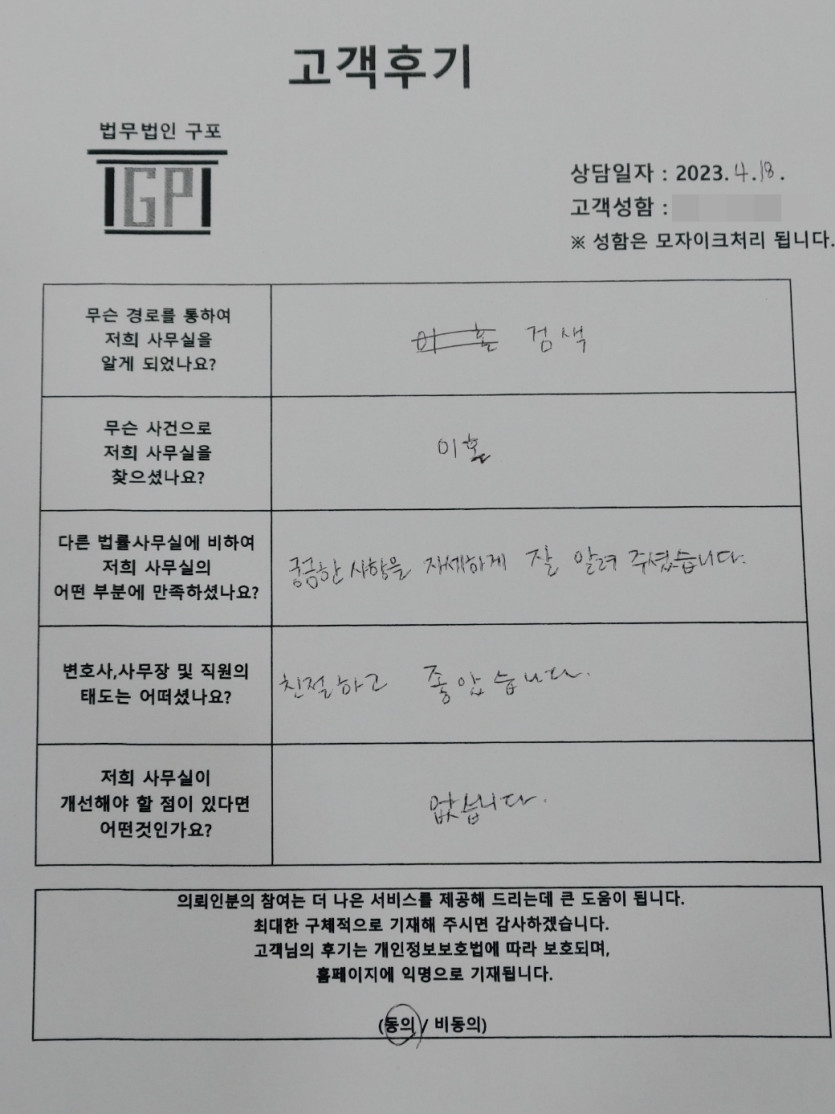 고객후기
법무법인 구포
IGPI
상담일자 : 2023. 4. 18.
고객성함 :
※ 성함은 모자이크처리 됩니다.
무슨 경로를 통하여
저희 사무실을
알게 되었나요?
이혼 검색
무슨 사건으로
저희 사무실을
찾으셨나요?
이혼
다른 법률사무실에 비하여
저희 사무실의
어떤 부분에 만족하셨나요?
궁금한 사항을 자세하게 잘 알려 주셨습니다.
변호사,사무장 및 직원의
태도는 어떠셨나요?
친절하고 좋았습니다.
저희 사무실이
개선해야 할 점이 있다면
어떤것인가요?
없습니다.
의뢰인분의 참여는 더 나은 서비스를 제공해 드리는데 큰 도움이 됩니다.
최대한 구체적으로 기재해 주시면 감사하겠습니다.
고객님의 후기는 개인정보보호법에 따라 보호되며,
홈페이지에 익명으로 기재됩니다.
(동의 / 비동의)